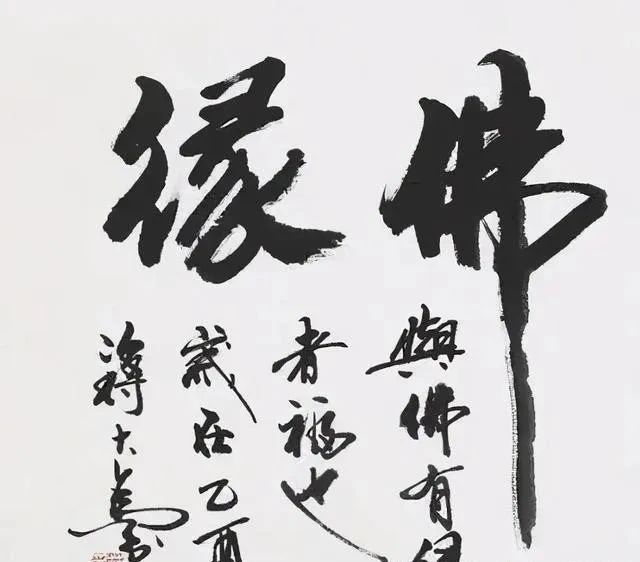 佛緣
與佛有緣
者福也
歲在乙酉
大為書